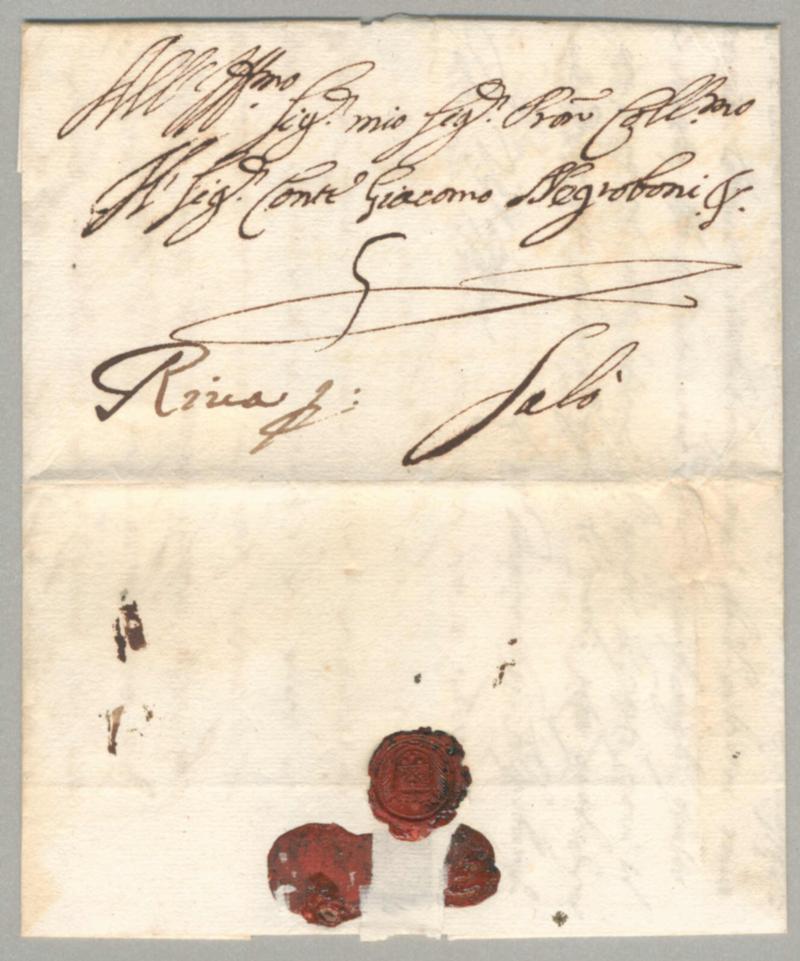 All' Ill.mo
Sig.r mio Sig.r Pron Coll.mo
Il Sig.r Conte Giacomo Negroboni &.
Riva p: Salò